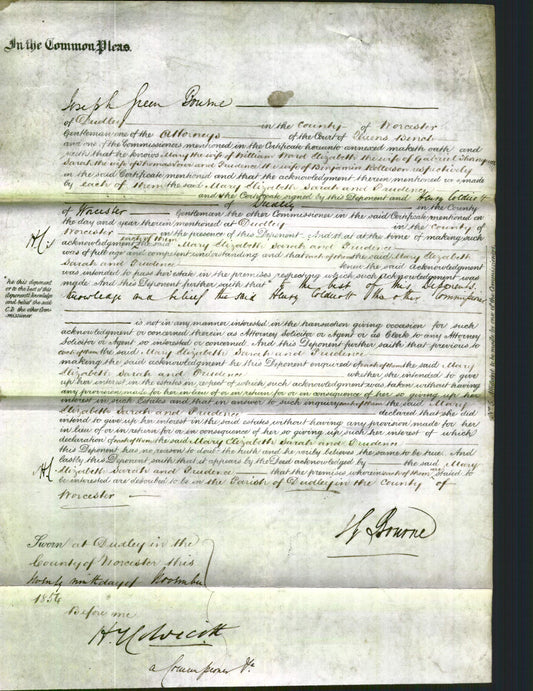 In the Common Pleas.
Joseph Green Bourne
of Dudley in the County of Worcester
Gentleman one of the Attorneys of the Court of Queens Bench
and one of the Commissioners mentioned in the Certificate hereunto annexed maketh oath and
saith that he knows Mary the wife of William Ward Elizabeth the wife of Gabriel
Sarah the wife of Thomas and Prudence the wife of Benjamin respectively
in the said Certificate mentioned and that the acknowledgment therein mentioned was made
by each of them the said Mary Elizabeth Sarah and Prudence
and the Certificate signed by this Deponent and Henry
of Dudley in the County
of Worcester Gentleman the other Commissioner in the said Certificate mentioned on
the day and year therein mentioned at Dudley in the County of
Worcester in the presence of this Deponent And that at the time of making such
acknowledgment the said Mary Elizabeth Sarah and Prudence
was of full age and competent understanding and that each of them the said Mary Elizabeth
Sarah and Prudence knew the said acknowledgment
was intended to pass her estate in the premises respecting which such acknowledgment was
made And this Deponent further saith that to the best of this Deponents
knowledge and belief the said Henry the other Commissioner
is not in any manner interested in the transaction giving occasion for such
acknowledgment or concerned therein as Attorney Solicitor or Agent or as Clerk to any Attorney
Solicitor or Agent so interested or concerned And this Deponent further saith that previous to
each of them the said Mary Elizabeth Sarah and Prudence
making the said acknowledgment he this Deponent enquired of each of them the said Mary
Elizabeth Sarah and Prudence whether she intended to give
up her interest in the estates in respect of which such acknowledgment was taken without having
any provision made for her in lieu of or in return for or in consequence of her so giving up her
interest in such Estates and that in answer to such inquiry each of them the said Mary
Elizabeth Sarah and Prudence declared that she did
intend to give up her interest in the said estates without having any provision made for her
in lieu of or in return for or in consequence of her so giving up such her interest of which
declaration of each of them the said Mary Elizabeth Sarah and Prudence
this Deponent has no reason to doubt the truth and he verily believes the same to be true And
lastly this Deponent saith that it appears by the Deed acknowledged by the said Mary
Elizabeth Sarah and Prudence that the premises wherein each of them was stated to
be interested are described to be in the Parish of Dudley in the County of
Worcester
*As this deponent
or to the best of this
deponents knowledge
and belief the said
C D the other Com-
missioner
J G Bourne
Sworn at Dudley in the
County of Worcester this
twenty ninth day of November
1854
Before me
a Commissioner &c